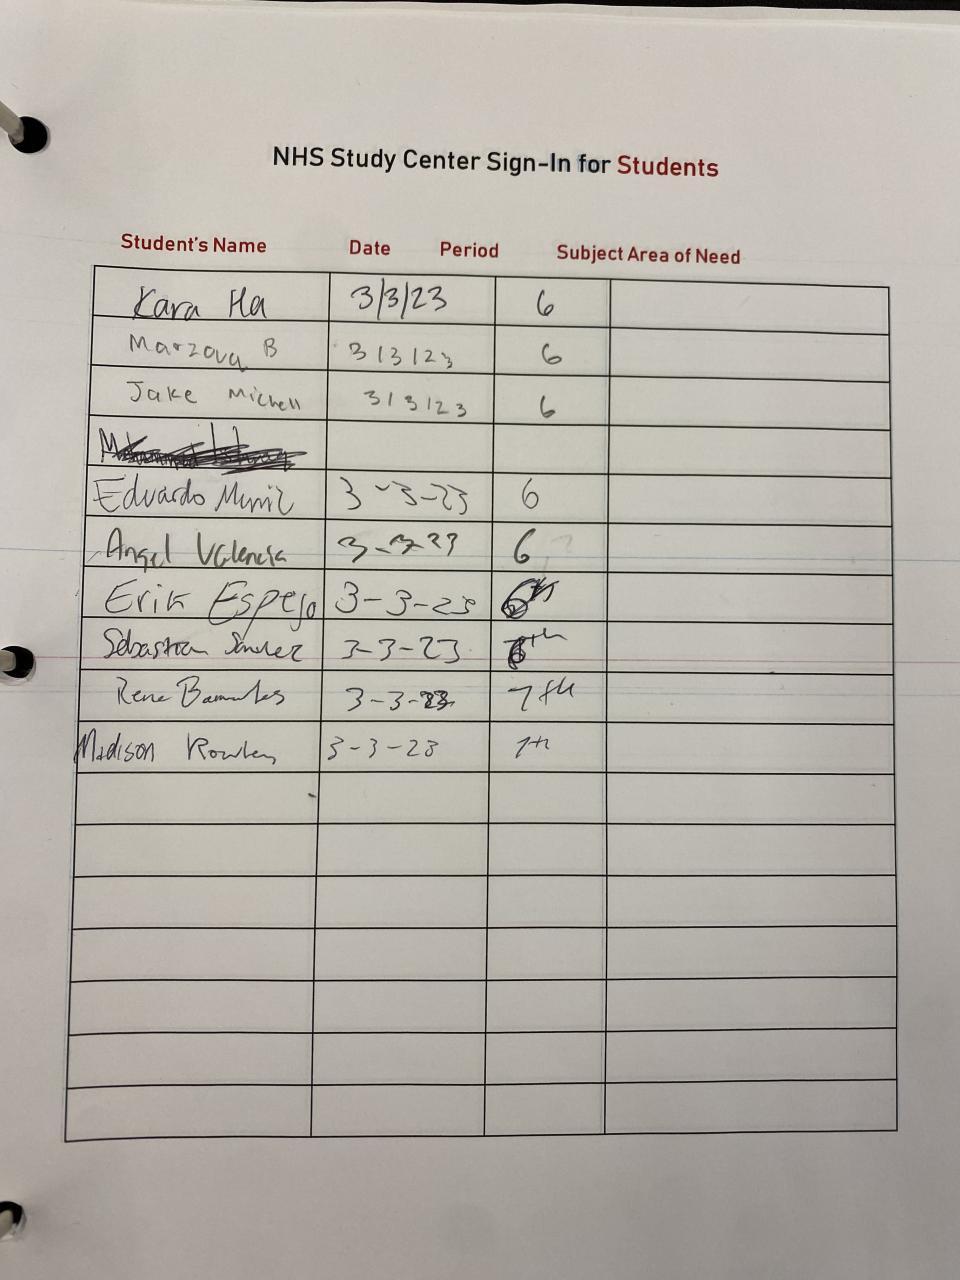 NHS Study Center Sign-In for Students
Student's Name Date Period Subject Area of Need
Kara Ha 3/3/23 6
Marzova B 3/3/23 6
Jake Michell 3/3/23 6
Eduardo Muniz 3-3-23 6
Angel Valencia 3-3-23 6
Erik Espejo 3-3-23 6th
Sebastian 3-3-23
Rene 3-3-23 7th
Madison Rowley 3-3-23 7th